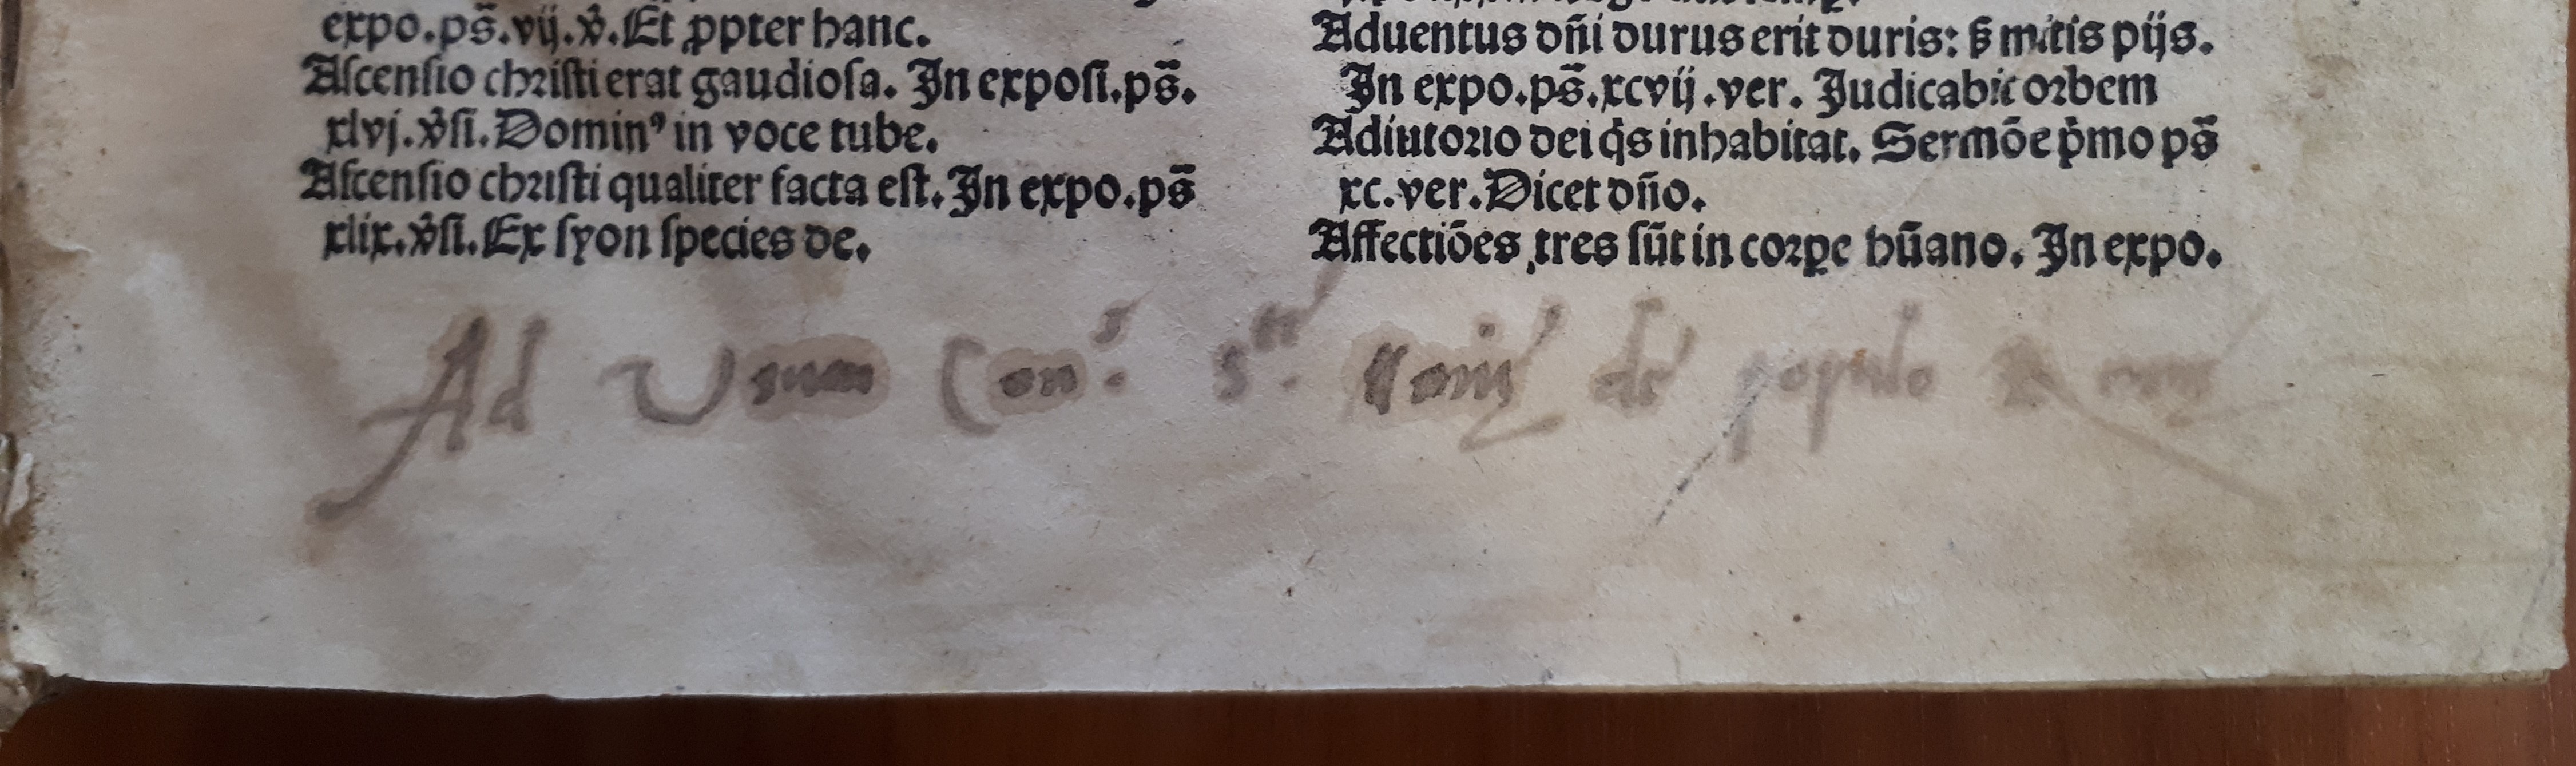 expo.ps̄.vij.v̉.Et ꝓpter hanc.
Aſcenſio chriſti erat gaudioſa. In expoſi.ps̄.
xlvj.v̉ſi.Dominꝰ in voce tube.
Aſcenſio chriſti qualiter facta eſt. In expo.ps̄
xlix.v̉ſi.Ex ſyon ſpecies de.
Aduentus dn̄i durus erit duris: ꝭ mitis pijs.
In expo.ps̄.xcvij.ver. Judicabit orbem
Adiutorio dei q̇s inhabitat. Sermōe ṗmo ps̄
xc.ver.Dicet dn̄o.
Affectiōes tres ſūt in corꝑe hūano. In expo.
Ad Usum Con.ˢ S.ᵗᵉ de populo